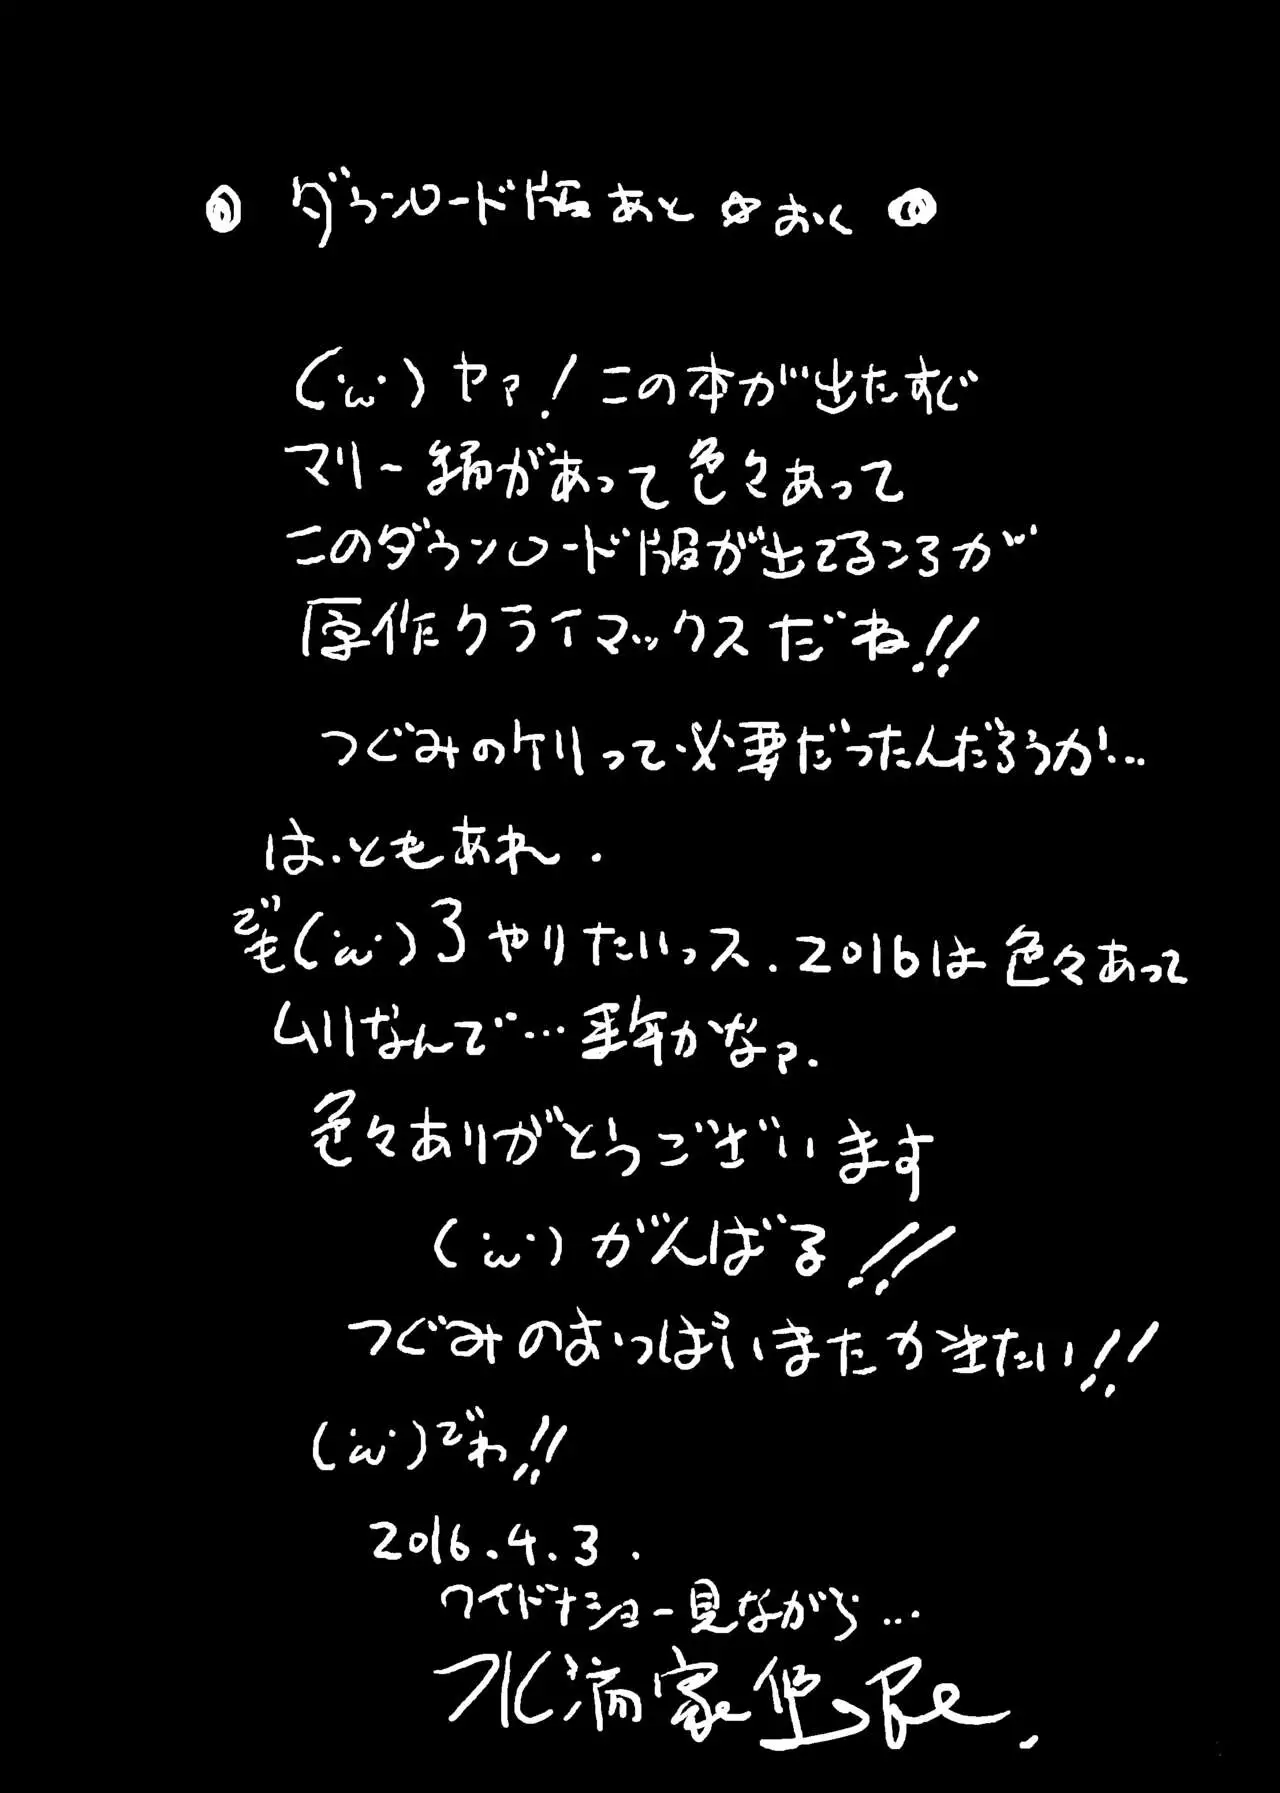 ダウンロード版あと☆おく
(´ω`)ヤァ!この本が出たすぐ
マリー編があって色々あって
このダウンロード版が出てるころが
原作クライマックスだね!!
つぐみのケリって必要だったんだろうか…
は、ともあれ.
でも(´ω`)3やりたいっス.2016は色々あって
ムリなんで…来年かなァ.
色々ありがとうございます
(´ω`)がんばる!!
つぐみのおっぱいまたかきたい!!
(´ω`)でわ!!
2016.4.3.
ワイドナショー見ながら…